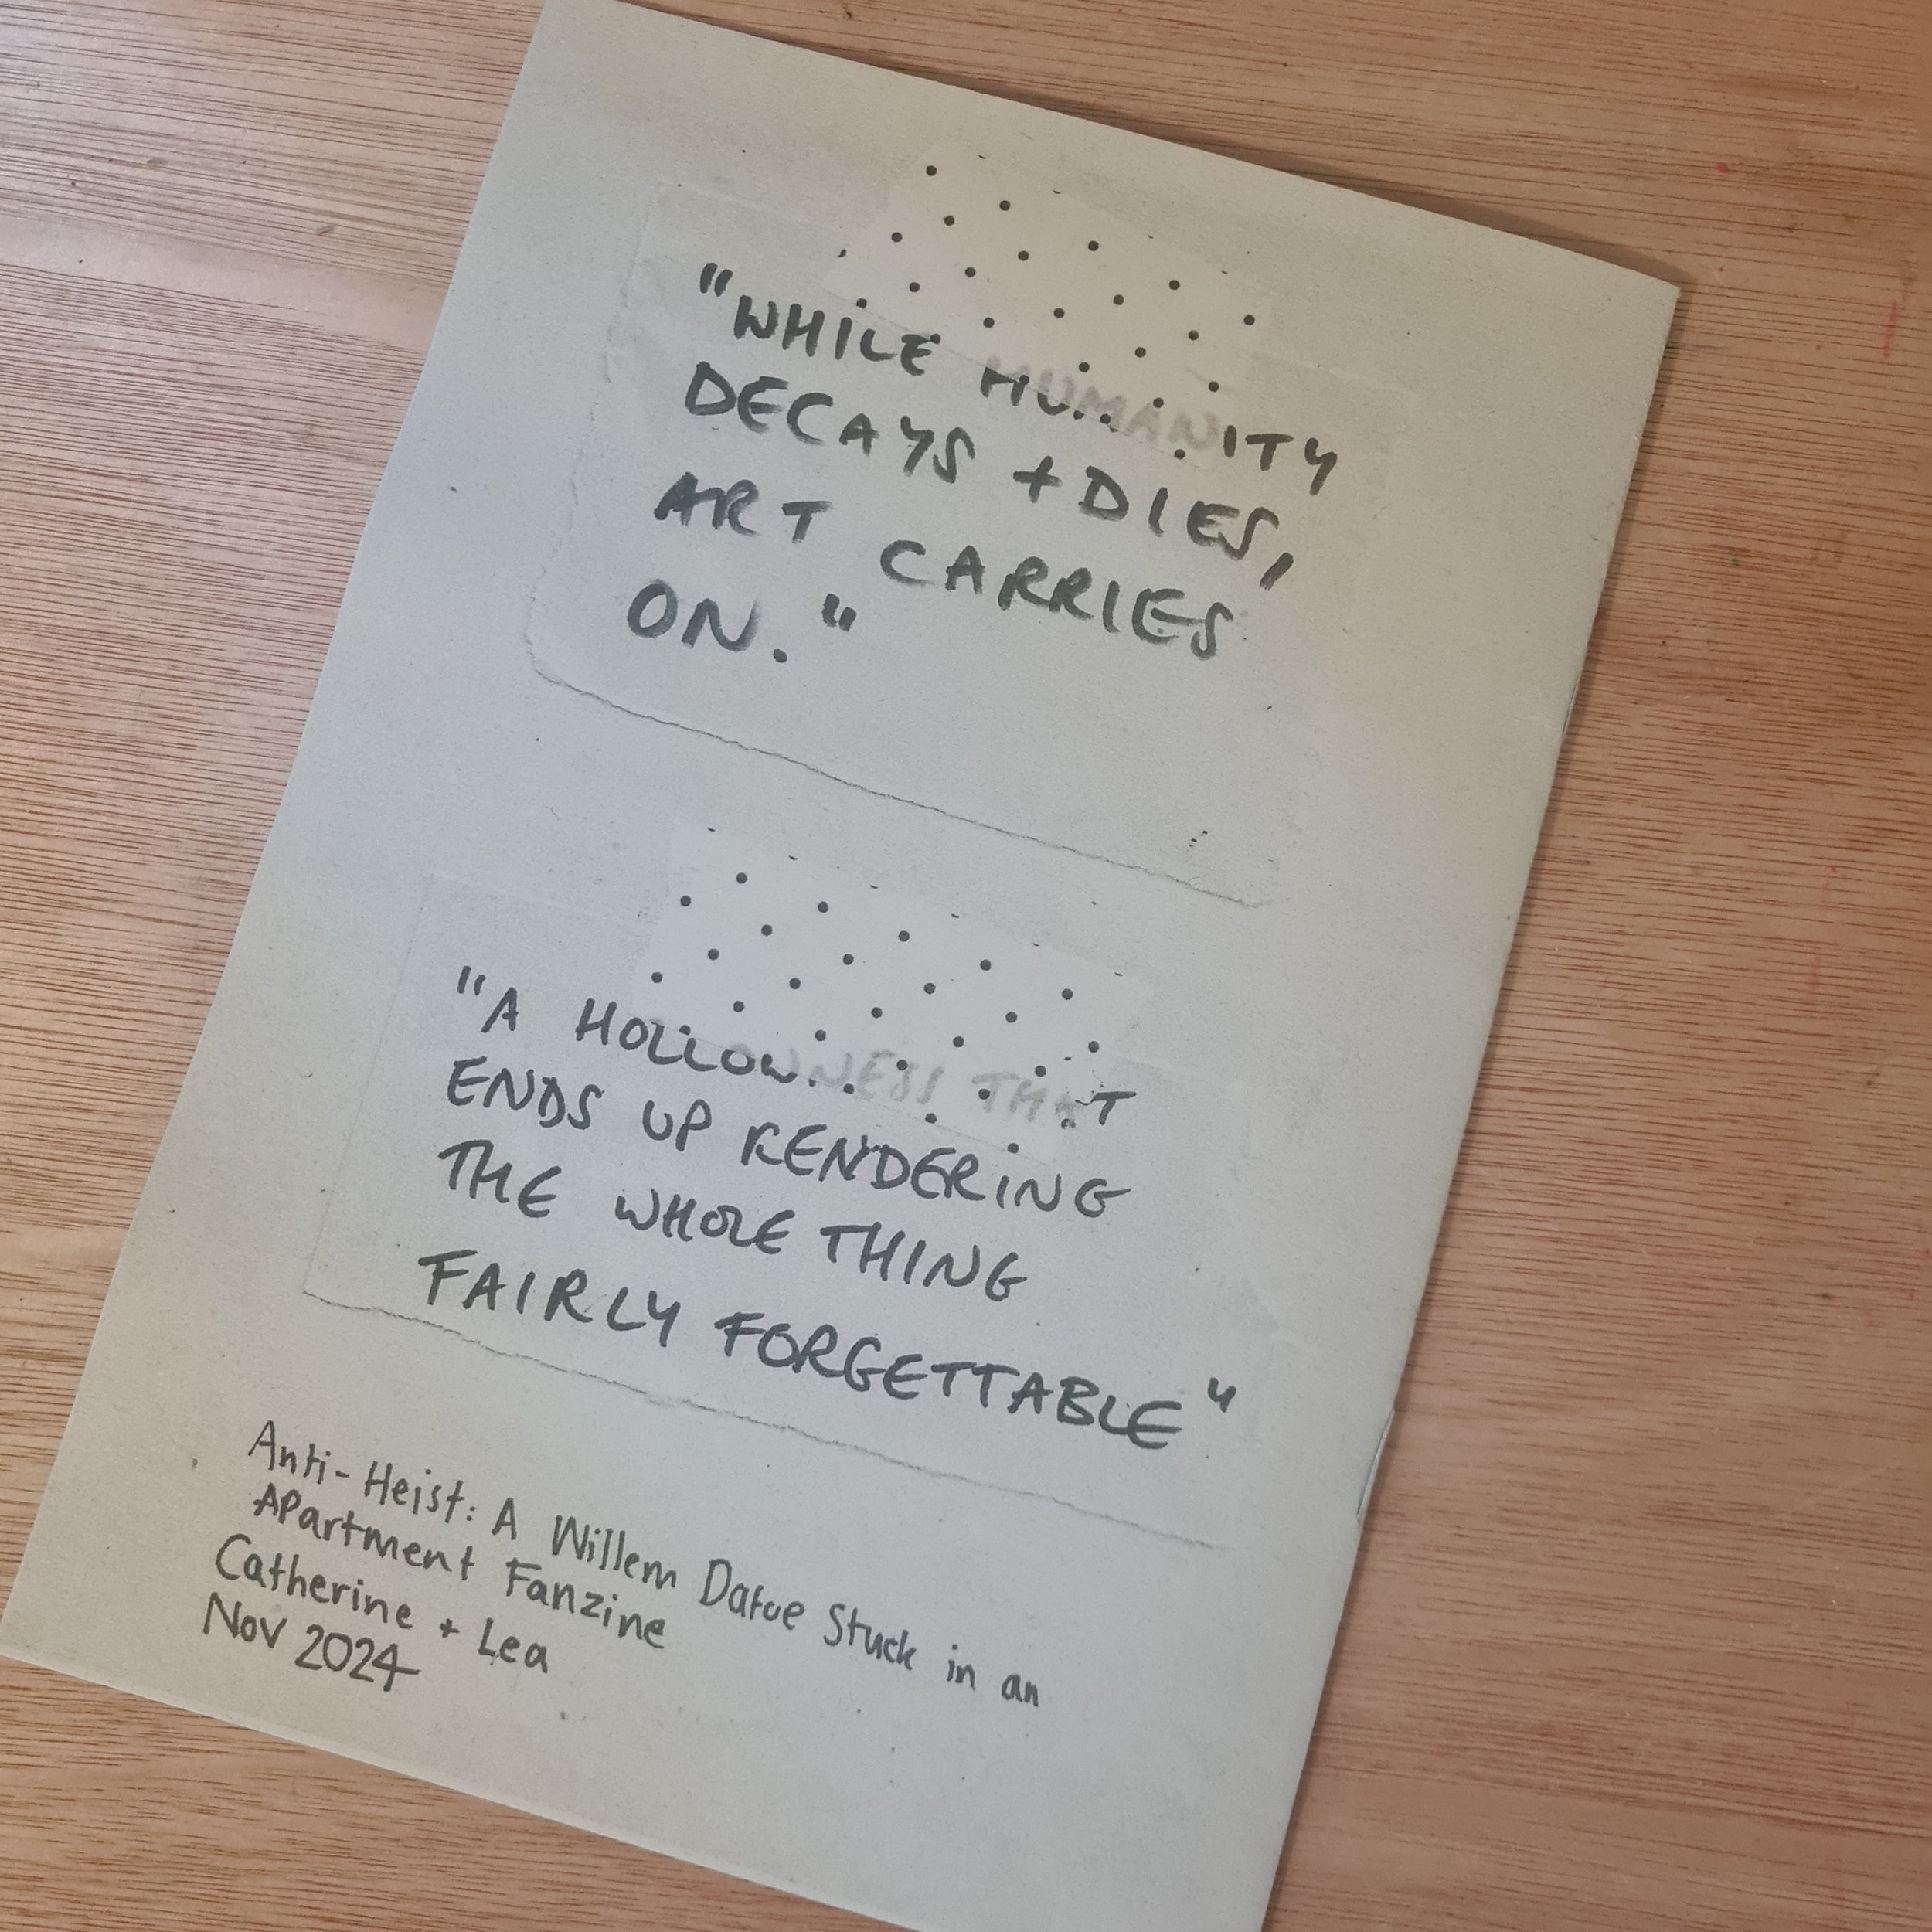 "WHILE HUMANITY
DECAYS + DIES,
ART CARRIES
ON."
"A HOLLOWNESS THAT
ENDS UP RENDERING
THE WHOLE THING
FAIRLY FORGETTABLE"
Anti-Heist: A Willem Dafoe Stuck in an
Apartment Fanzine
Catherine + Lea
Nov 2024